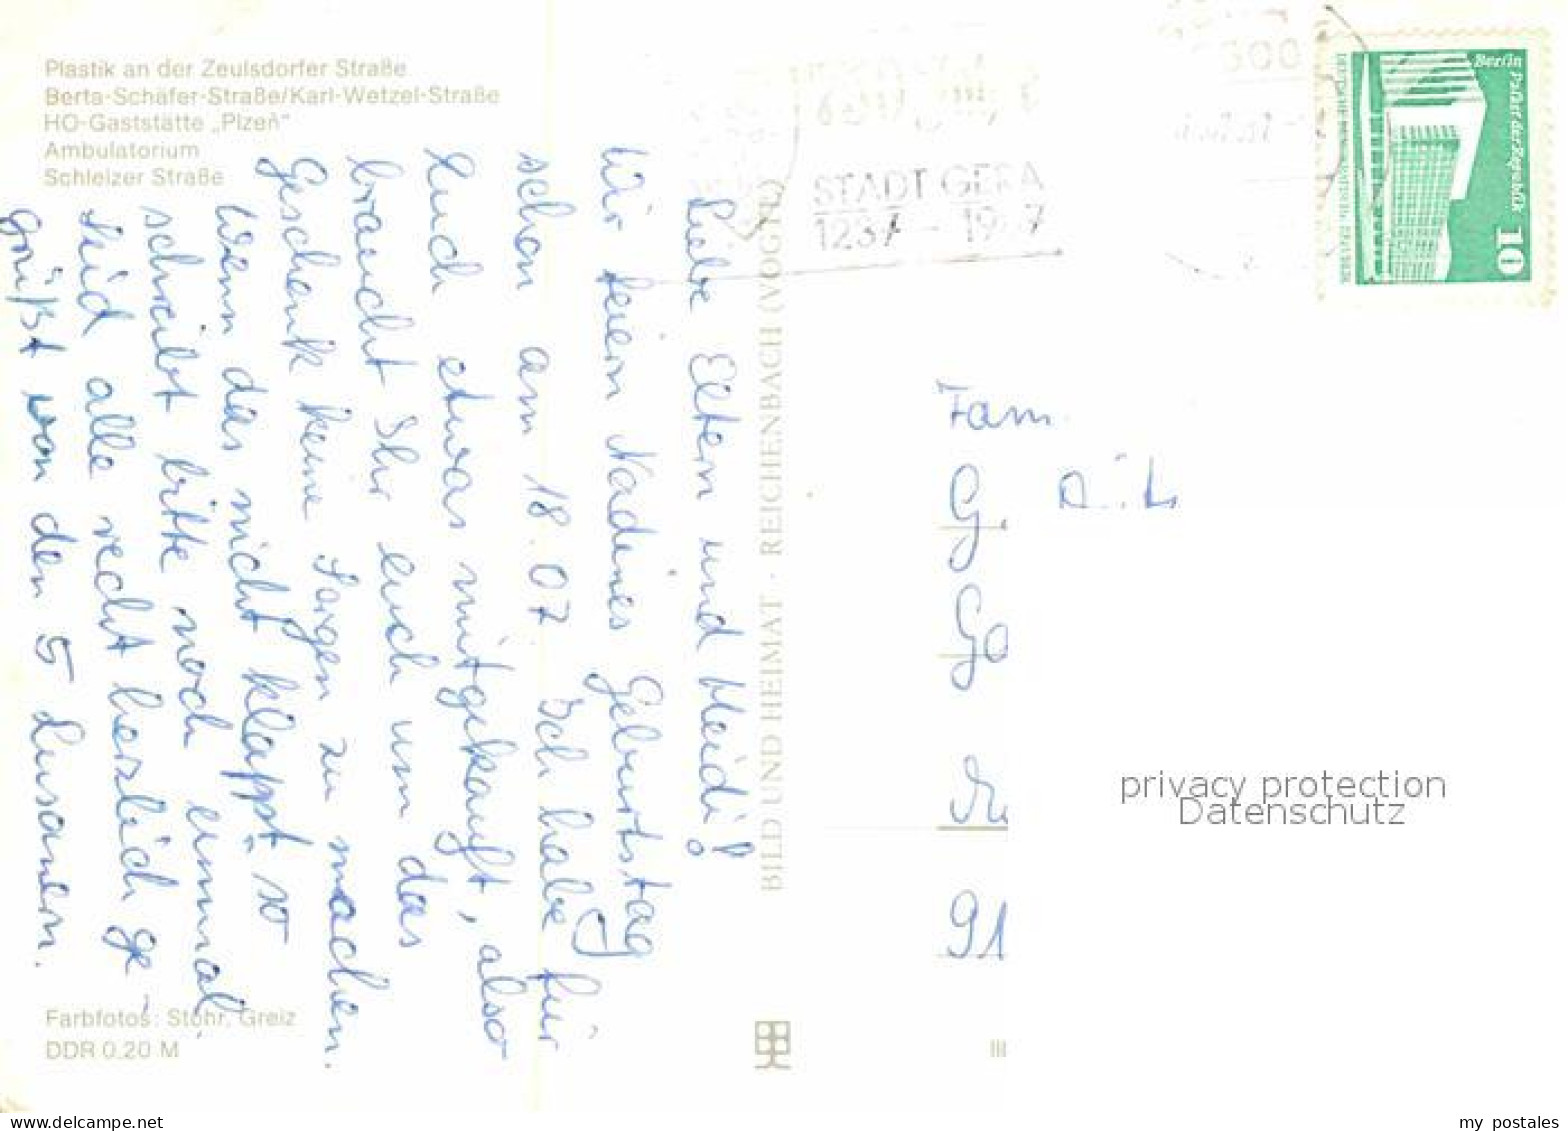 Plastik an der Zeulsdorfer Straße
Berta-Schäfer-Straße/Karl-Wetzel-Straße
HO-Gaststätte „Plzeň"
Ambulatorium
Schleizer Straße
Liebe Eltern und Heidi!
Wir feiern Nadines Geburtstag
schon am 18.07. Ich habe für
Euch etwas mitgekauft, also
braucht Ihr euch um das
Geschenk keine Sorgen zu machen.
Wenn das nicht klappt so
schreibt bitte noch einmal.
Seid alle recht herzlich ge-
grüßt von den 5 Lusanern.
Farbfotos: Stöhr, Greiz
DDR 0,20 M
BILD UND HEIMAT · REICHENBACH (VOGTLD
STADT GERA
1237 – 1987
Berlin Palast der Republik
10
Fam.
G.
Go
91
III
privacy protection
Datenschutz
my postales